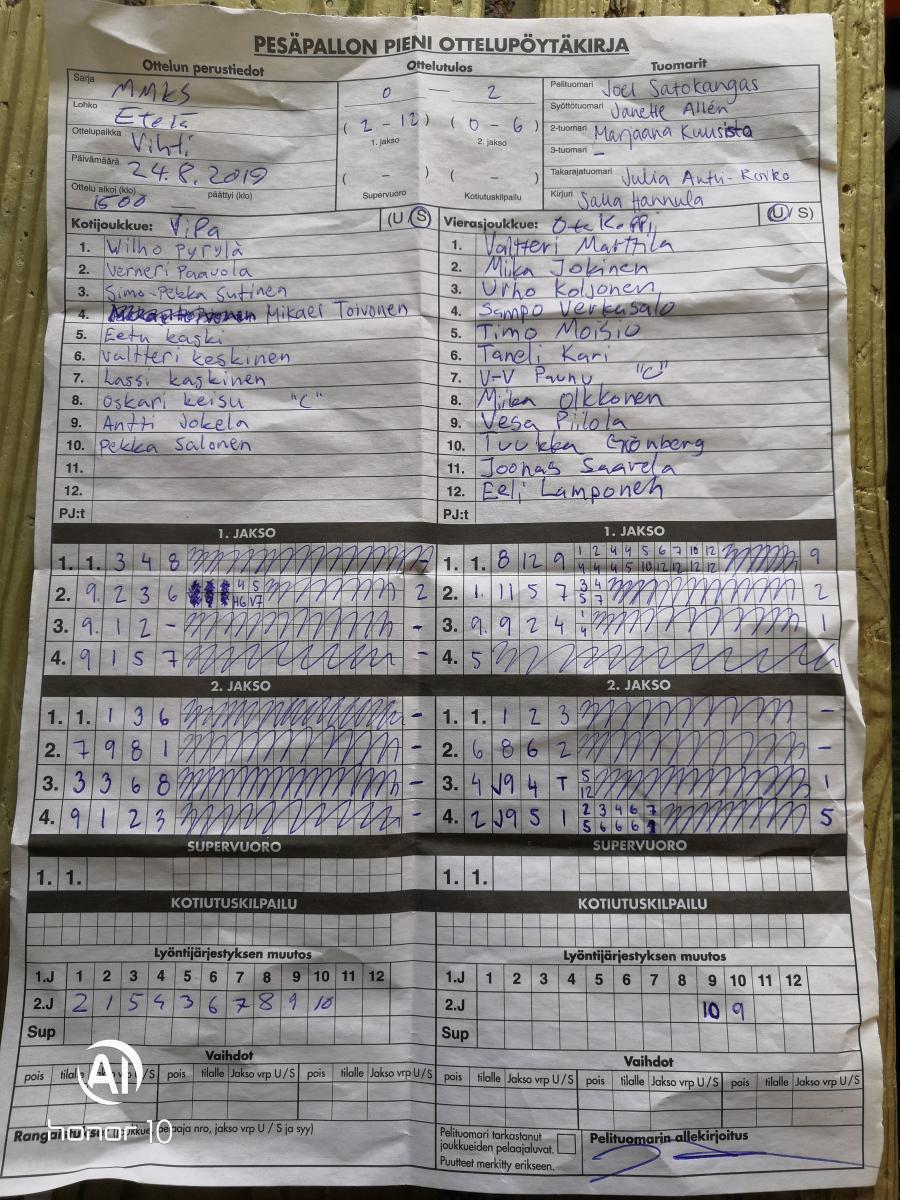 PESÄPALLON PIENI OTTELUPÖYTÄKIRJA
Ottelun perustiedot
Sarja MMKS
Lohko Etelä
Ottelupaikka Vihti
Päivämäärä 24.8.2019
Ottelu alkoi (klo) 15.00 päättyi (klo)
Ottelutulos
0 — 2
(2-12) (0-6)
1. jakso 2. jakso
( - ) ( - )
Supervuoro Kotiutuskilpailu
Tuomarit
Pelituomari Joel Satokangas
Syöttötuomari Janette Allén
2-tuomari Marjaana Kuusisto
3-tuomari -
Takarajatuomari Julia Antti-Roiko
Kirjuri Salla Hannula
Kotijoukkue: ViPa (U/S)
1. Wilho Pyrylä
2. Verneri Paavola
3. Simo-Pekka Sutinen
4. Mikael Toivonen
5. Eetu kaski
6. Valtteri keskinen
7. Lassi kaskinen
8. Oskari keisu "C"
9. Antti Jokela
10. Pekka Salonen
11.
12.
PJ:t
Vierasjoukkue: Ota Koppi (U/S)
1. Valtteri Marttila
2. Mika Jokinen
3. Urho Koljonen
4. Sampo Verkasalo
5. Timo Moisio
6. Taneli Kari
7. V-V "C"
8. Mika Olkkonen
9. Vesa Piilola
10. Tuukka Grönberg
11. Joonas Saarela
12. Eeli Lamponen
PJ:t
1. JAKSO
1. 1. 3 4 8
2. 9. 2 3 6 4 5 2
H6 V7
3. 9. 1 2 - -
4. 9 1 5 7 -
2. JAKSO
1. 1. 1 3 6 -
2. 7 9 8 1 -
3. 3 3 6 8 -
4. 9 1 2 3 -
SUPERVUORO
1. 1.
KOTIUTUSKILPAILU
1. JAKSO
1. 1. 8 12 9 1 2 4 4 5 6 7 10 12 9
4 4 4 5 10 12 12 12 12
2. 1. 11 5 7 3 4 2
5 7
3. 9. 9 2 4 1 1
4
4. 5
2. JAKSO
1. 1. 1 2 3 -
2. 6 8 6 2 -
3. 4 J9 4 T 5 1
12
4. 2 J9 5 1 2 3 4 6 7 5
5 6 6 6
SUPERVUORO
1. 1.
KOTIUTUSKILPAILU
Lyöntijärjestyksen muutos
1.J 1 2 3 4 5 6 7 8 9 10 11 12
2.J 2 1 5 4 3 6 7 8 9 10
Sup
Lyöntijärjestyksen muutos
1.J 1 2 3 4 5 6 7 8 9 10 11 12
2.J 10 9
Sup
Vaihdot
pois tilalle Jakso vrp U/S pois tilalle Jakso vrp U/S pois tilalle Jakso vrp U/S
Vaihdot
pois tilalle Jakso vrp U/S pois tilalle Jakso vrp U/S pois tilalle Jakso vrp U/S
Rangaistukset (joukkue, pelaaja nro, jakso vrp U / S ja syy)
Pelituomari tarkastanut
joukkueiden pelaajaluvat.
Puutteet merkitty erikseen.
Pelituomarin allekirjoitus
AI
10